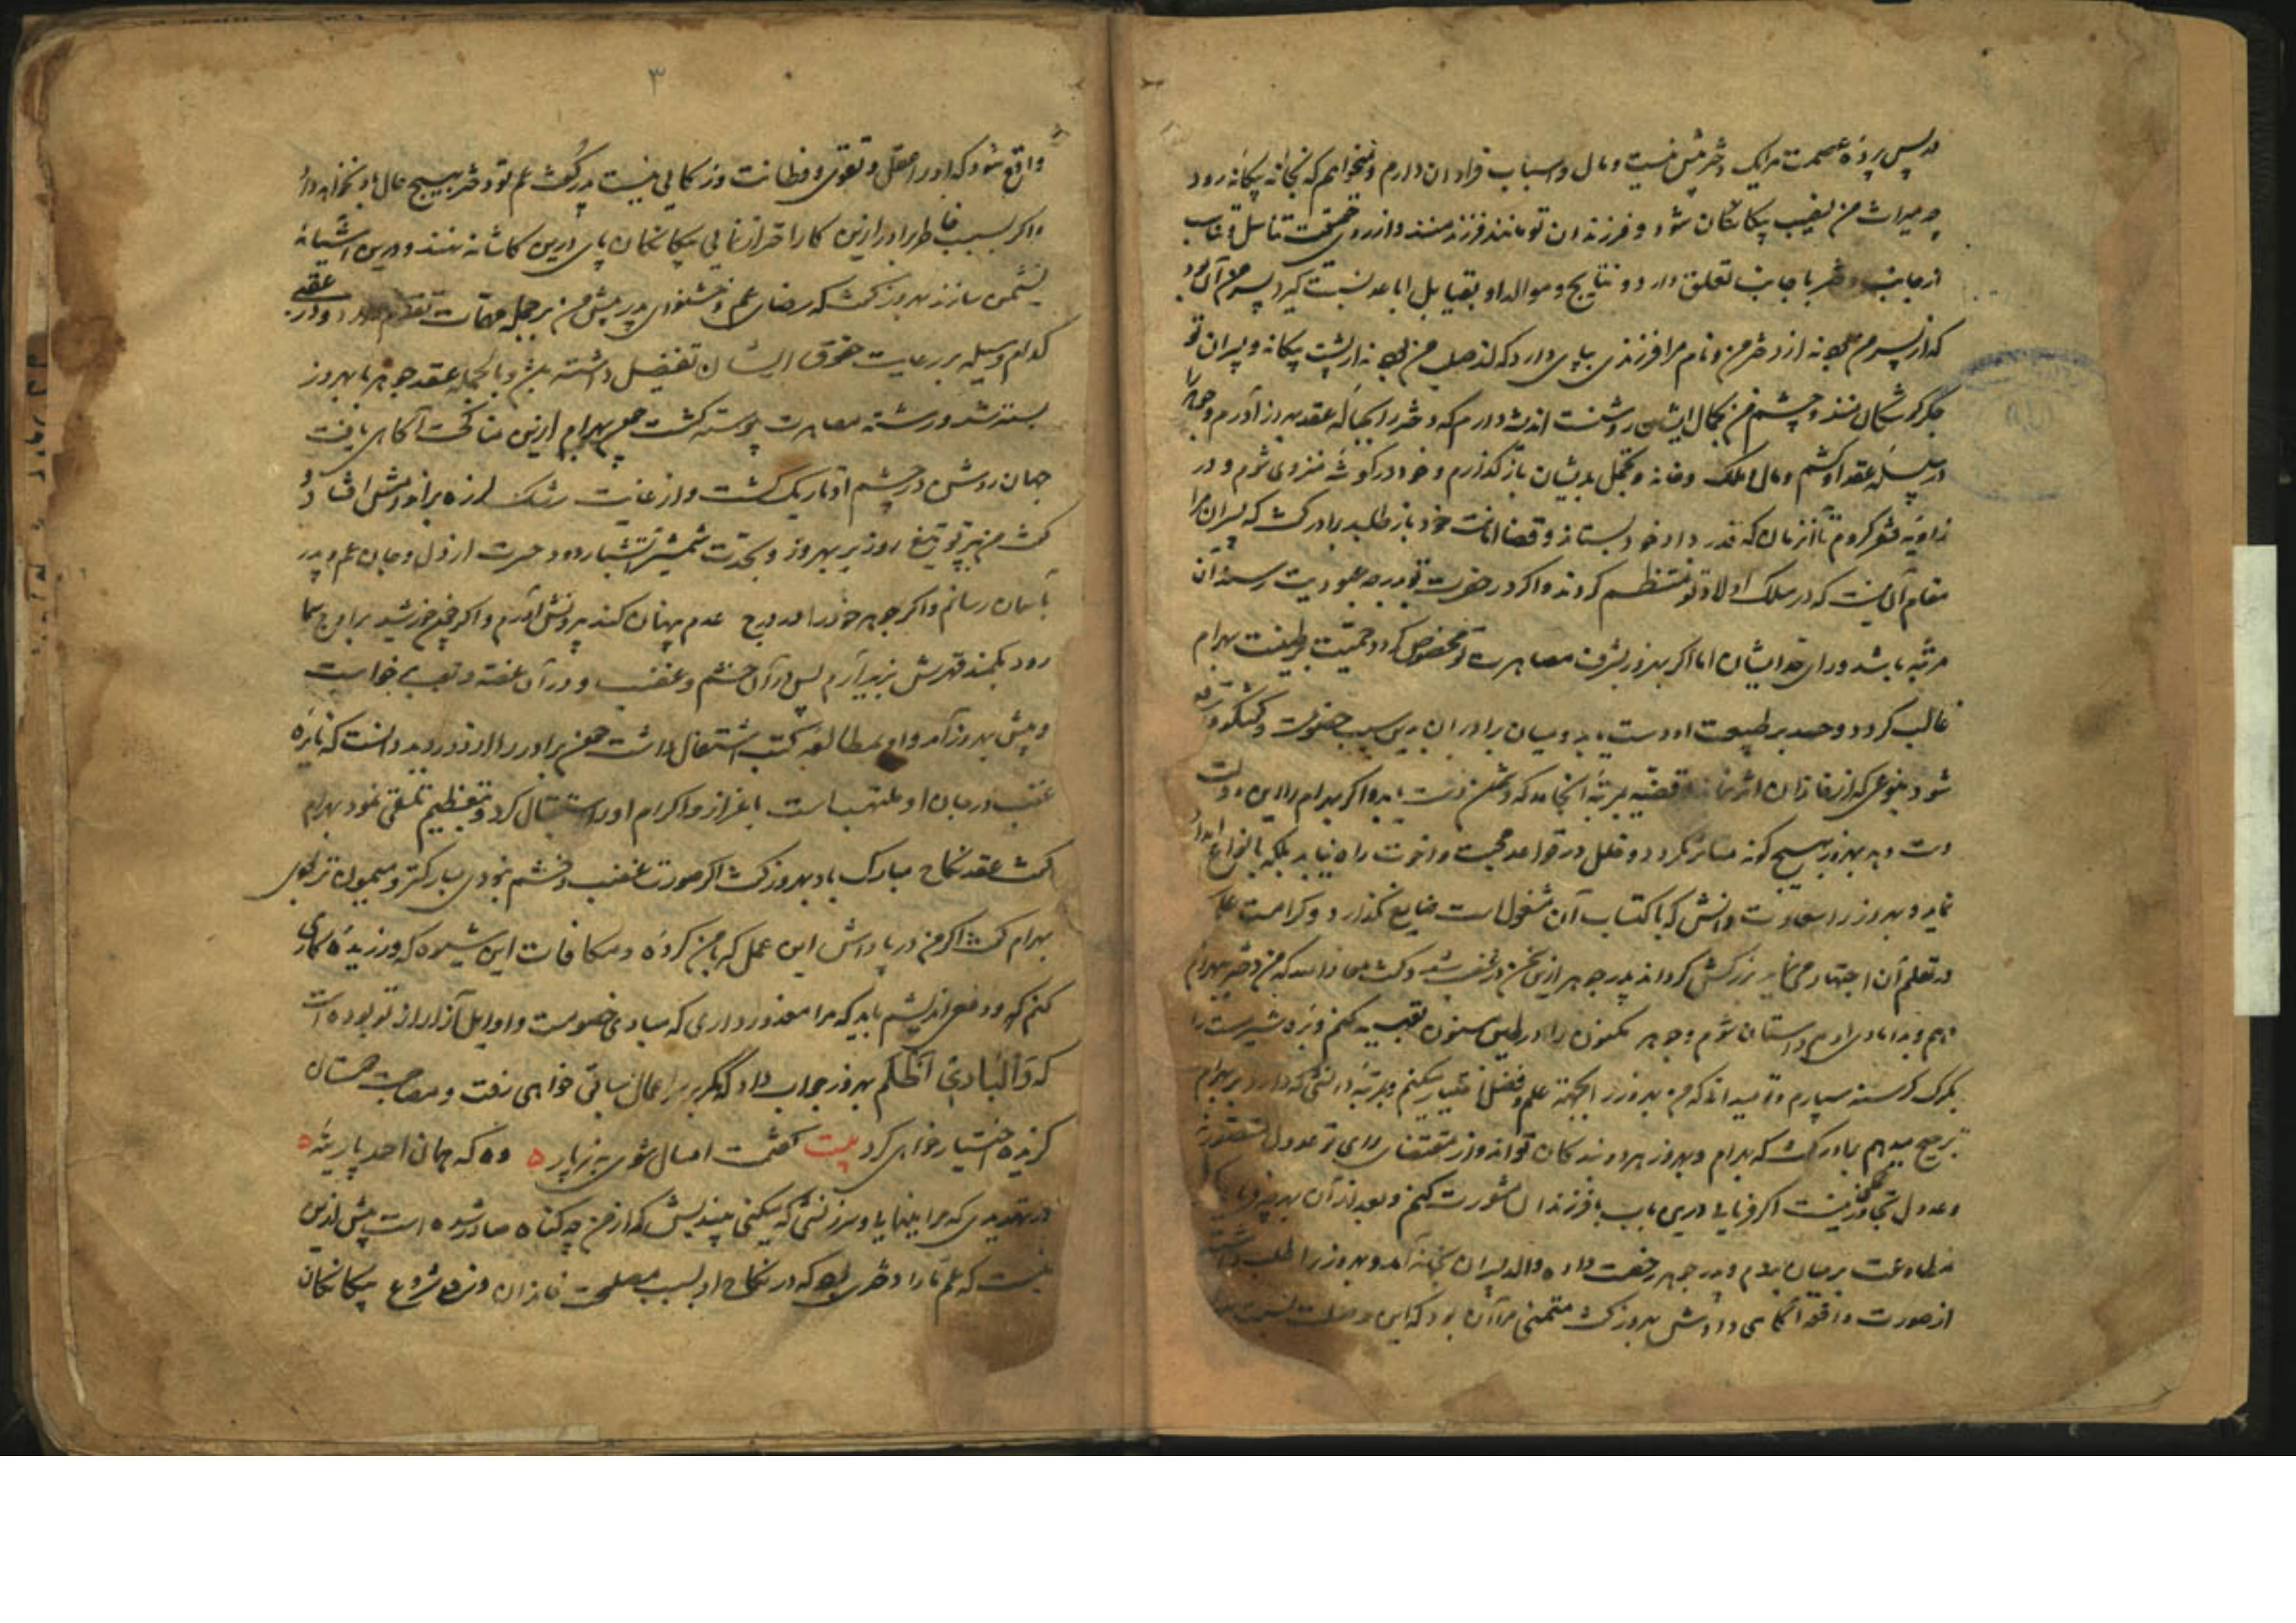 در پس پردهٔ عصمت مرا یک دختر بیش نیست و مال و اسباب فراوان دارم و نمیخواهم که بخانه بیکانه رود
و میراث من نصیب بیکانکان شود و فرزندان تو مانند فرزند منند و از روی تحقیق تناسل
از جانب دختر با جانب تعلق دارد و نتایج و موالد او بقبایل اباعد نسبت کیرد پسر من آن بود
که از پسر من بود نه از دختر من و نام مرا فرزندی بپای دارد که از صلب من بود نه از پشت بیکانه و پسران تو
جکرکوشکان منند و چشم من بجمال ایشان روشنست اندیشه دارم که دختر را بحباله عقد بهروز آورم و
در سلسله عقد او کشم و مال و املاک و خانه و تجمل بدیشان باز کذارم و خود در کوشه منزوی شوم و در
زاویه فقر کروم تا آنزمان که قدر داد خود بستاند و قضا امانت خود باز طلبد برادر کفت که پسران مرا
مقام آن نیست که در سلک اولاد تو منتظم کردند و اکر در حضرت تو بدرجه عبودیت رسند آن
مرتبه باشد ورای حد ایشان اما اکر بهروز بشرف مصاهرت تو مخصوص کردد حمیت بر طینت بهرام
غالب کردد و حسد بر طبیعت او دست یابد و میان برادران بدین سبب خصومت و کفتکوی
شود بنوعی که از خاندان اثر نماند و قضیه بمرتبه انجامد که دشمن دست یابد و اکر بهرام را این دولت
دست دهد بهروز بهیچ کونه متاثر نکردد و خلل در قواعد محبت و اخوت راه نیابد بلکه بانواع
نماید و بهروز را سعادت دانش که باکتساب آن مشغول است ضایع نکذارد و کرامت علم
در تعلم آن اجتهاد می نماید بزرکش کرداند پدر جوهر ازین سخن در تاب شد و کفت معاذ الله که من دختر ببهرام
دهم و بدامادی او همداستان شوم و جوهر مکنون را در طین مسنون تعبیه کنم و بره شیرمست را
بکرک کرسنه سپارم و تو میدانی که من بهروز را بجهت علم و فضل اختیار میکنم و بمرتبه دانشی که دارد بر بهرام
ترجیح میدهم برادر کفت که بهرام و بهروز هر دو بندکان تو اند و از مقتضای رای تو عدول متصور نه
و عدول و تجاوز نیست اکر فرمایی درین باب با فرزندان مشورت کنم و بعد از آن بدو
مطاوعت بر میان بندم و پدر جوهر رخصت داد و والد پسران بخانه آمد و بهروز را طلب داشته
از صورت واقعه آکاهی داد و بهروز کفت متمنی مرا آن بود که این وصلت نسبت
۳
واقع شود که او را عقل و تقوی و فطانت و زکایی نیست پدر کفت عم تو دختر بهیچ حال باو نخواهد داد
و اکر بسبب خاطر برادر ازین کار احتراز نمایی بیکانکان پای درین کاشانه نهند و درین آشیانه
نشیمن سازند بهروز کفت که رضای عم و خشنودی پدر پیش من بر جمله مهمات تقدم دارد و در عقبی
کدام وسیله بر رعایت حقوق ایشان تفضیل داشته باشد و بالجمله عقد جوهر با بهروز
بسته شد و رشته مصاهرت پیوسته کشت چون بهرام ازین مناکحت آکاهی یافت
جهان روشن در چشم او تاریک کشت و از غایت رشک لرزه بر اندامش افتاد و
کفت من پرتو تیغ روز بر بهروز و بحدت شمشیر آتشبار دود حسرت از دل و جان عم و پدر
بآسمان رسانم و اکر جوهر خود را در درج عدم پنهان کند بیرونش آرم و اکر چون خورشید بر اوج سما
رود بکمند قهرش بزیر آرم پس در آن خشم و غضب و در آن غصه و تعب برخواست
و پیش بهروز آمد و او بمطالعه کتب اشتغال داشت چون برادر را از دور بدید دانست که نایره
غضب در جان او ملتهب است باعزاز و اکرام او را استقبال کرد و بتعظیم تلقی نمود بهرام
کفت عقد نکاح مبارک باد بهروز کفت اکر صورت غضب و خشم نبودی مبارکتر و میمون تر بودی
بهرام کفت اکر من در پاداش این عمل که با من کرده و مکافات این شیوه که ورزیده کاری
کنم که در دفع اندیشم باید که مرا معذور داری که مبادی خصومت و اوایل آزار از تو بوده است
که وَالْبَادِیُ اَظْلَم بهروز جواب داد که مکر بر سر اعمال سابق خواهی رفت و مصاحبت
کزیده اختیار خواهی کرد بیت کفتمت امسال شوی به ز پار ه وه که همان احمد پارینه ه
در تهدیدی که مرا مینمایی و سرزنشی که میکنی بیندیش که از من چه کناه صادر شده است بیش ازین
نیست که عم ما را دختری بود که در نکاح او بسبب مصلحت خاندان و شروع بیکانکان